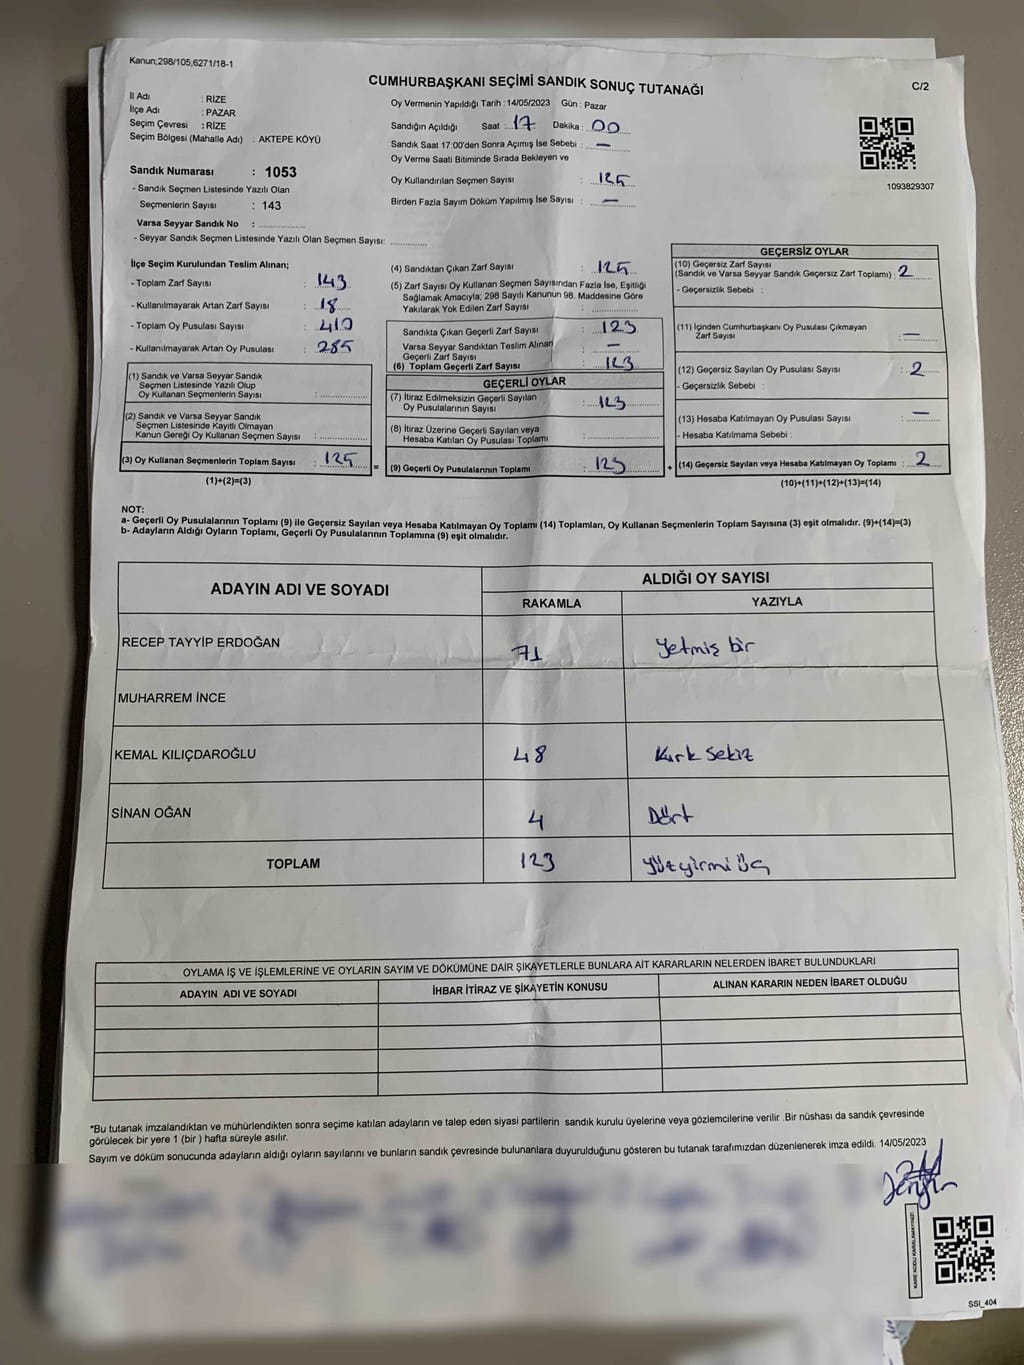 Kanun;298/105;6271/18-1
CUMHURBAŞKANI SEÇİMİ SANDIK SONUÇ TUTANAĞI
C/2
İl Adı : RİZE
İlçe Adı : PAZAR
Seçim Çevresi : RİZE
Seçim Bölgesi (Mahalle Adı) : AKTEPE KÖYÜ
Sandık Numarası : 1053
- Sandık Seçmen Listesinde Yazılı Olan
Seçmenlerin Sayısı : 143
Varsa Seyyar Sandık No :
- Seyyar Sandık Seçmen Listesinde Yazılı Olan Seçmen Sayısı:
Oy Vermenin Yapıldığı Tarih :14/05/2023 Gün : Pazar
Sandığın Açıldığı Saat : 17 Dakika : 00
Sandık Saat 17:00'den Sonra Açımış İse Sebebi : —
Oy Verme Saati Bitiminde Sırada Bekleyen ve
Oy Kullandırılan Seçmen Sayısı : 125
Birden Fazla Sayım Döküm Yapılmış İse Sayısı : —
1093829307
İlçe Seçim Kurulundan Teslim Alınan;
- Toplam Zarf Sayısı : 143
- Kullanılmayarak Artan Zarf Sayısı : 18
- Toplam Oy Pusulası Sayısı : 410
- Kullanılmayarak Artan Oy Pusulası : 285
(1) Sandık ve Varsa Seyyar Sandık
Seçmen Listesinde Yazılı Olup
Oy Kullanan Seçmenlerin Sayısı :
(2) Sandık ve Varsa Seyyar Sandık
Seçmen Listesinde Kayıtlı Olmayan
Kanun Gereği Oy Kullanan Seçmen Sayısı :
(3) Oy Kullanan Seçmenlerin Toplam Sayısı : 125
(1)+(2)=(3)
=
(4) Sandıktan Çıkan Zarf Sayısı : 125
(5) Zarf Sayısı Oy Kullanan Seçmen Sayısından Fazla İse, Eşitliği
Sağlamak Amacıyla; 298 Sayılı Kanunun 98. Maddesine Göre
Yakılarak Yok Edilen Zarf Sayısı :
Sandıkta Çıkan Geçerli Zarf Sayısı : 123
Varsa Seyyar Sandıktan Teslim Alınan
Geçerli Zarf Sayısı : —
(6) Toplam Geçerli Zarf Sayısı : 123
GEÇERLİ OYLAR
(7) İtiraz Edilmeksizin Geçerli Sayılan
Oy Pusulalarının Sayısı : 123
(8) İtiraz Üzerine Geçerli Sayılan veya
Hesaba Katılan Oy Pusulası Toplamı :
(9) Geçerli Oy Pusulalarının Toplamı : 123
+
GEÇERSİZ OYLAR
(10) Geçersiz Zarf Sayısı
(Sandık ve Varsa Seyyar Sandık Geçersiz Zarf Toplamı) : 2
- Geçersizlik Sebebi :
(11) İçinden Cumhurbaşkanı Oy Pusulası Çıkmayan
Zarf Sayısı : —
(12) Geçersiz Sayılan Oy Pusulası Sayısı : 2
- Geçersizlik Sebebi :
(13) Hesaba Katılmayan Oy Pusulası Sayısı : —
- Hesaba Katılmama Sebebi :
(14) Geçersiz Sayılan veya Hesaba Katılmayan Oy Toplamı : 2
(10)+(11)+(12)+(13)=(14)
NOT:
a- Geçerli Oy Pusulalarının Toplamı (9) ile Geçersiz Sayılan veya Hesaba Katılmayan Oy Toplamı (14) Toplamları, Oy Kullanan Seçmenlerin Toplam Sayısına (3) eşit olmalıdır. (9)+(14)=(3)
b- Adayların Aldığı Oyların Toplamı, Geçerli Oy Pusulalarının Toplamına (9) eşit olmalıdır.
ADAYIN ADI VE SOYADI
ALDIĞI OY SAYISI
RAKAMLA YAZIYLA
RECEP TAYYİP ERDOĞAN 71 Yetmiş bir
MUHARREM İNCE
KEMAL KILIÇDAROĞLU 48 Kırk Sekiz
SİNAN OĞAN 4 Dört
TOPLAM 123 Yüzyirmi üç
OYLAMA İŞ VE İŞLEMLERİNE VE OYLARIN SAYIM VE DÖKÜMÜNE DAİR ŞİKAYETLERLE BUNLARA AİT KARARLARIN NELERDEN İBARET BULUNDUKLARI
ADAYIN ADI VE SOYADI İHBAR İTİRAZ VE ŞİKAYETİN KONUSU ALINAN KARARIN NEDEN İBARET OLDUĞU
*Bu tutanak imzalandıktan ve mühürlendikten sonra seçime katılan adayların ve talep eden siyasi partilerin sandık kurulu üyelerine veya gözlemcilerine verilir .Bir nüshası da sandık çevresinde
görülecek bir yere 1 (bir ) hafta süreyle asılır.
Sayım ve döküm sonucunda adayların aldığı oyların sayılarını ve bunların sandık çevresinde bulunanlara duyurulduğunu gösteren bu tutanak tarafımızdan düzenlenerek imza edildi. 14/05/2023
KARE KODU KARALAMAYINIZ!
SSI_404